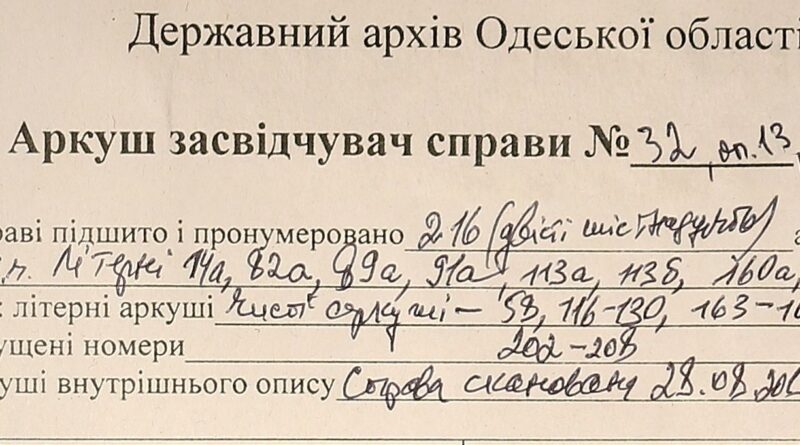 Державний архів Одеської області
Аркуш засвідчувач справи № 32, оп. 13,
раві підшито і пронумеровано 216 (двісті шістнадцять) а
літерні 14а, 82а, 89а, 91а, 113а, 113б, 160а,
: літерні аркуші чисті аркуші – 58, 116–130, 163–16
ущені номери 202–208
уші внутрішнього опису Справа скановану 28.08.20